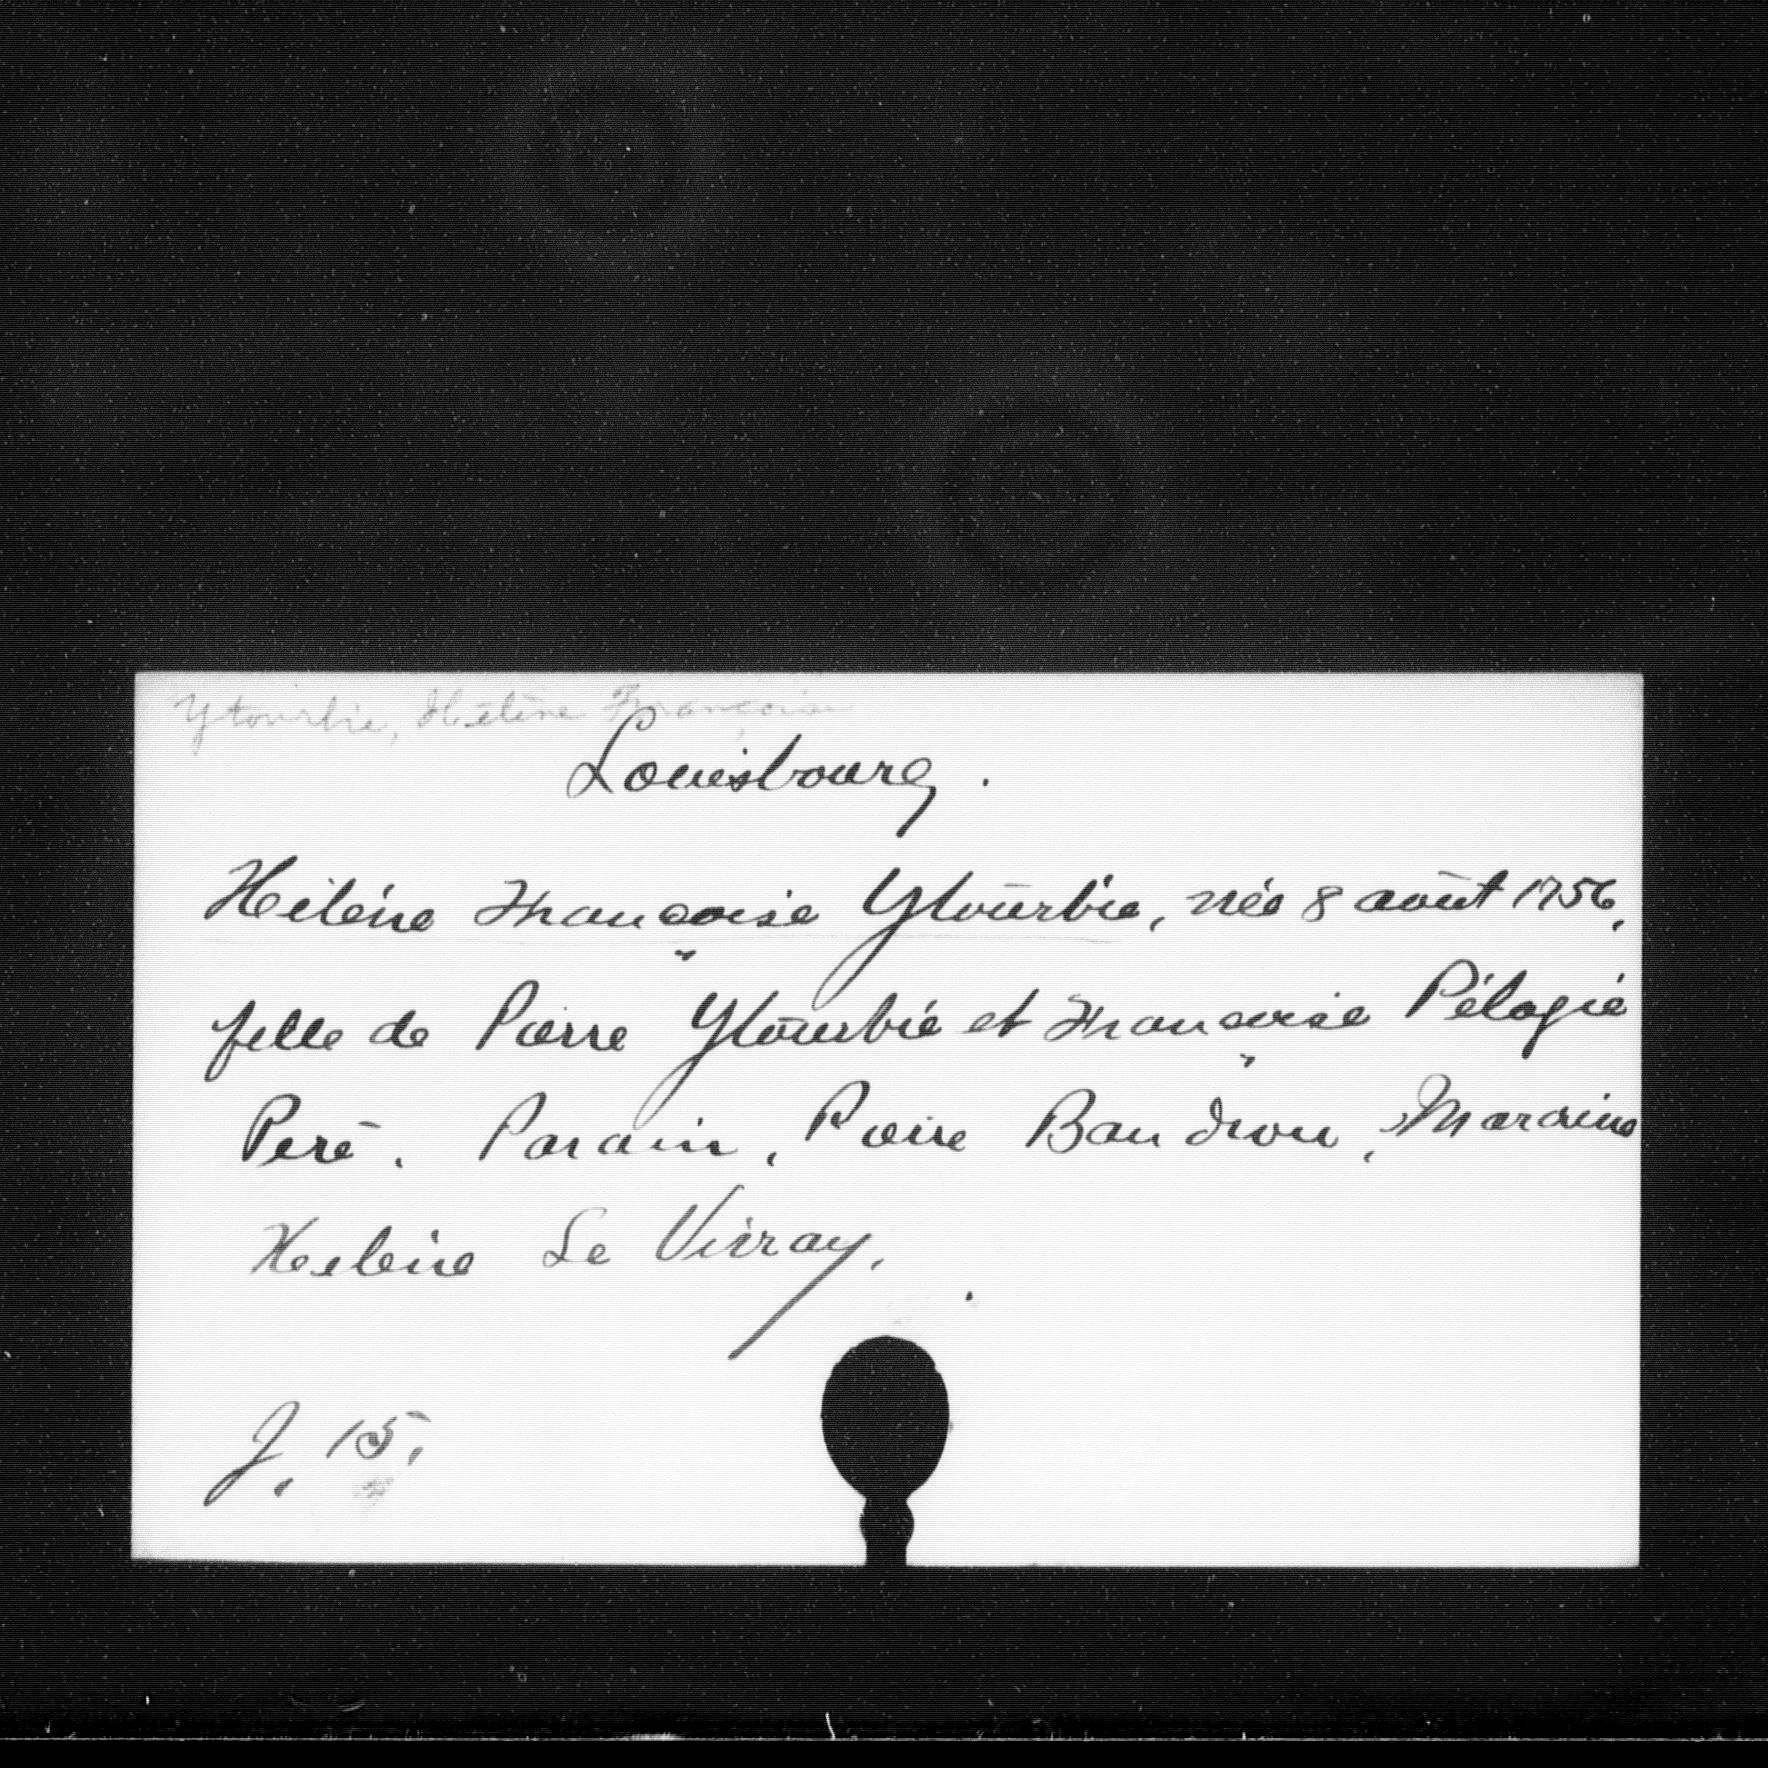 Ytourbie, Hélène Françoise
Louisbourg.
Hélène Françoise Ytourbie, née 8 août 1756,
fille de Pierre Ytourbie et Françoise Pélagie
Peré. Parain, Pierre Baudron, Maraine
Helene Le Virray.
J. 15.